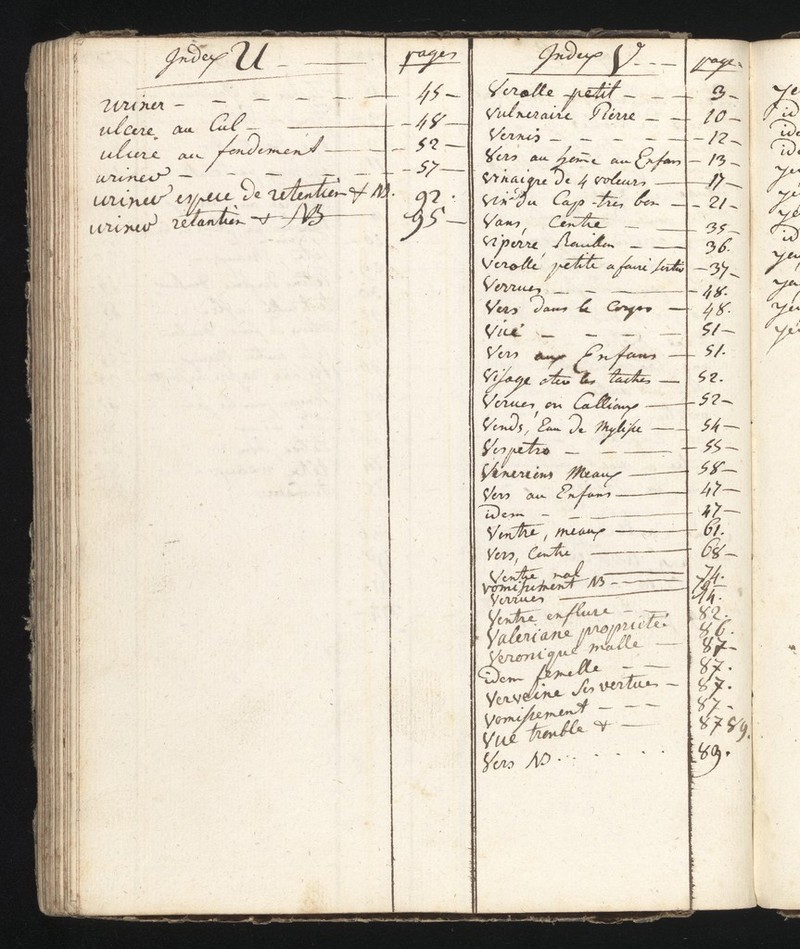 Index U pages
uriner 45
ulcere au Cul 48
ulcere au fondement 52
uriner 57
uriner espece de retention & NB. 92.
uriner retantion & NB 95
Index V page
Verolle petit 3
Vulneraire Pierre 10
Vernis 12
Vers au home au Enfan 13
Vinaigre de 4 voleurs 17
Vin du Cap tres bon 21
Vans, Centre 35
Viperre 36.
Verolle petite a faire sortir 37
Verrues 48.
Vers dans le Corps 48.
Vüe 51
Vers aux Enfans 51.
Visage oter les taches 52.
Verues, ou Callioux 52
Vends, Eau de Mylisse 54
Vespetro 55
Venereins Meaux 58
Vers au Enfans 47
idem 47
Ventre, meaux 61.
Vers, Centre 68
Ventre mal 74.
vomissement NB
Verrues 14.
Ventre enflure 82.
Valeriane proprieté 86.
Veronique malle 87
idem femelle 87.
Verveine ses vertues 87.
Vomissement 87
Vüe trouble & 87 89.
Vers NB 89.